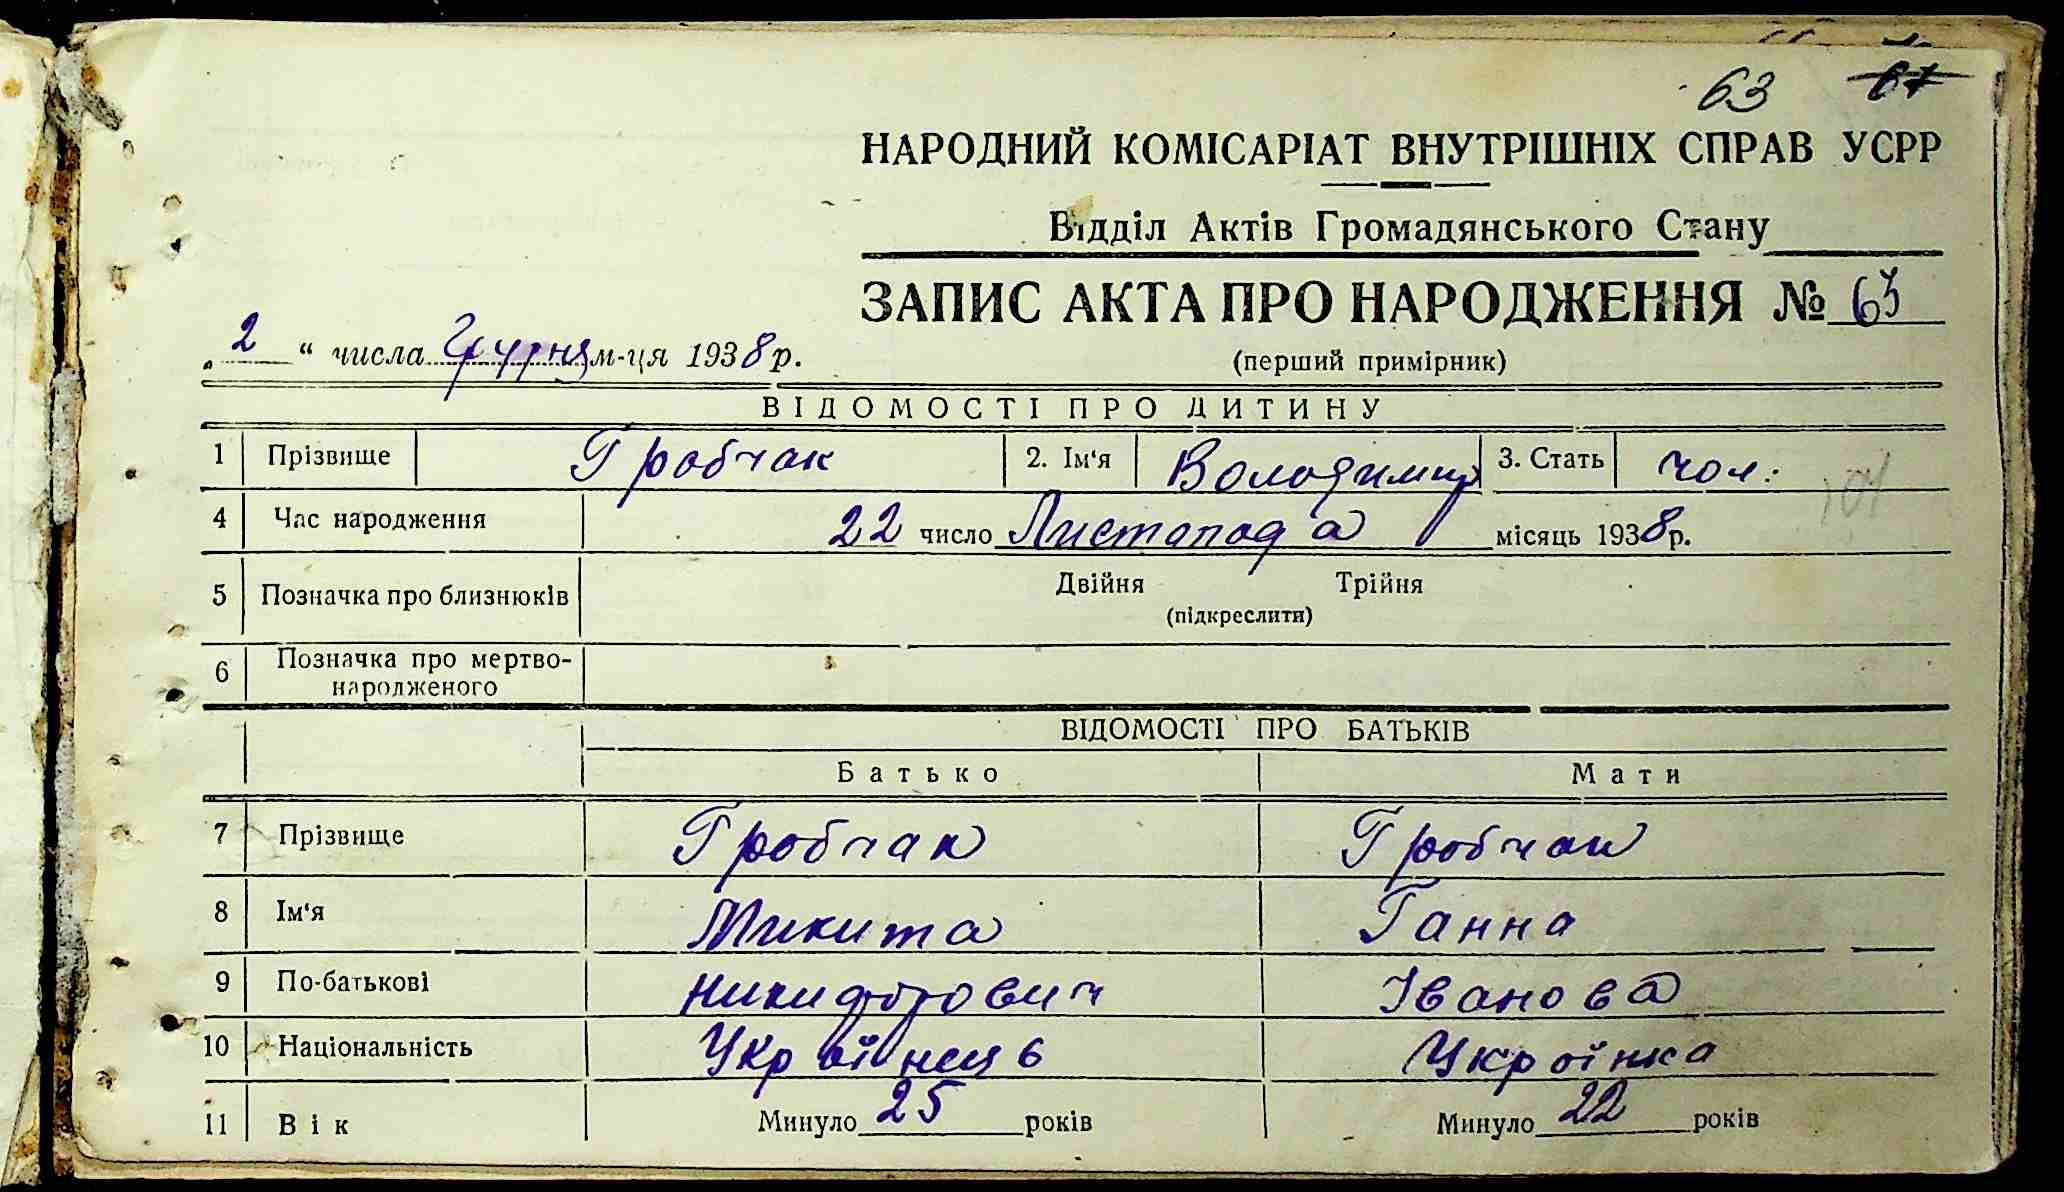 63 61
НАРОДНИЙ КОМІСАРІАТ ВНУТРІШНІХ СПРАВ УСРР
Відділ Актів Громадянського Стану
ЗАПИС АКТА ПРО НАРОДЖЕННЯ № 63
„ 2 “ числа Грудня м-ця 1938 р.
(перший примірник)
ВІДОМОСТІ ПРО ДИТИНУ
1 Прізвище Гробчак 2. Ім‘я Володимир 3. Стать чол:
4 Час народження 22 число Листопада місяць 1938 р.
5 Позначка про близнюків Двійня Трійня
(підкреслити)
6 Позначка про мертво-
народженого
ВІДОМОСТІ ПРО БАТЬКІВ
Батько Мати
7 Прізвище Гробчак Гробчак
8 Ім‘я Микита Ганна
9 По-батькові Никифорович Іванова
10 Національність Українець Українка
11 Вік Минуло 25 років Минуло 22 років